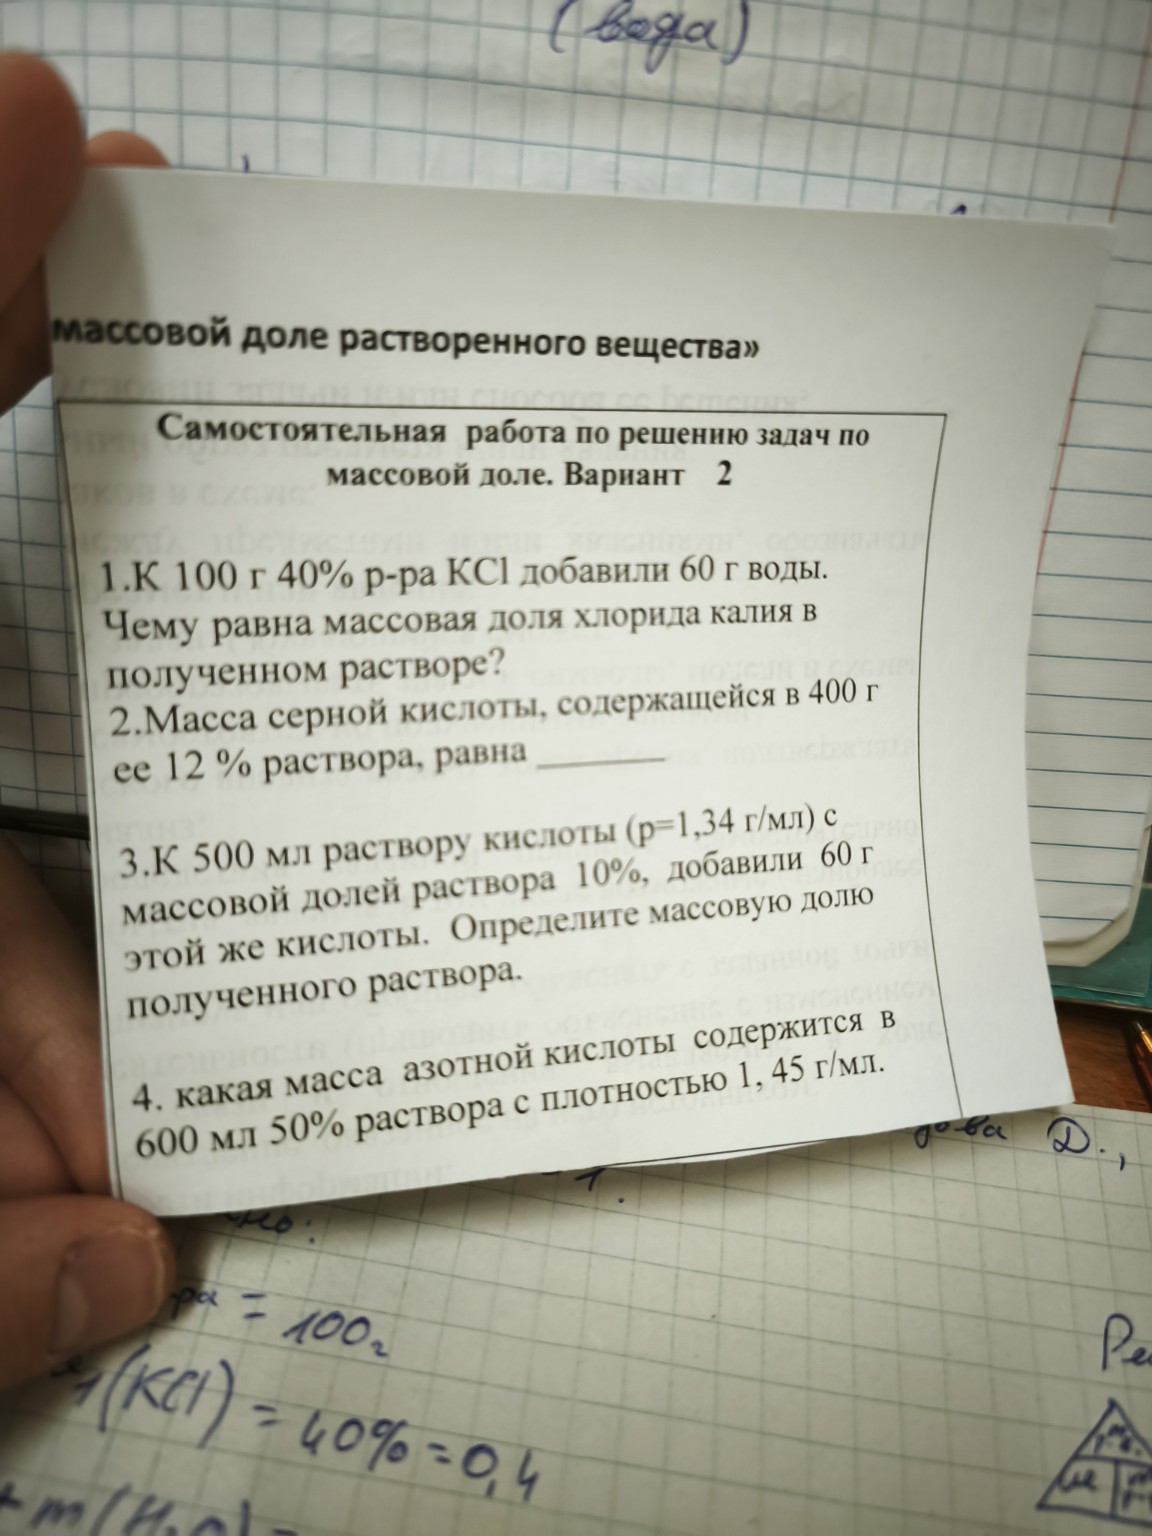 (вода)
массовой доле растворенного вещества»
Самостоятельная работа по решению задач по
массовой доле. Вариант 2
1.К 100 г 40% р-ра KCl добавили 60 г воды.
Чему равна массовая доля хлорида калия в
полученном растворе?
2.Масса серной кислоты, содержащейся в 400 г
ее 12 % раствора, равна ________
3.К 500 мл раствору кислоты (р=1,34 г/мл) с
массовой долей раствора 10%, добавили 60 г
этой же кислоты. Определите массовую долю
полученного раствора.
4. какая масса азотной кислоты содержится в
600 мл 50% раствора с плотностью 1, 45 г/мл.
Д.,
1.
= 100г
(KCl) = 40% = 0,4